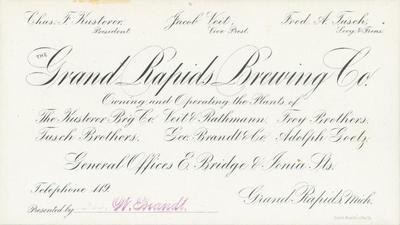 Chas. F. Kusterer, Jacob Veit, Fred. A. Tusch,
President. Vice Prest. Secy. & Treas.
THE
Grand Rapids Brewing Co.
Owning and Operating the Plants of
The Kusterer Br'g Co. Veit & Rathmann. Frey Brothers.
Tusch Brothers. Geo. Brandt & Co. Adolph Goetz.
General Offices E. Bridge & Ionia Sts.
Telephone 119.
Grand Rapids, Mich.
Presented by W. Brandt.